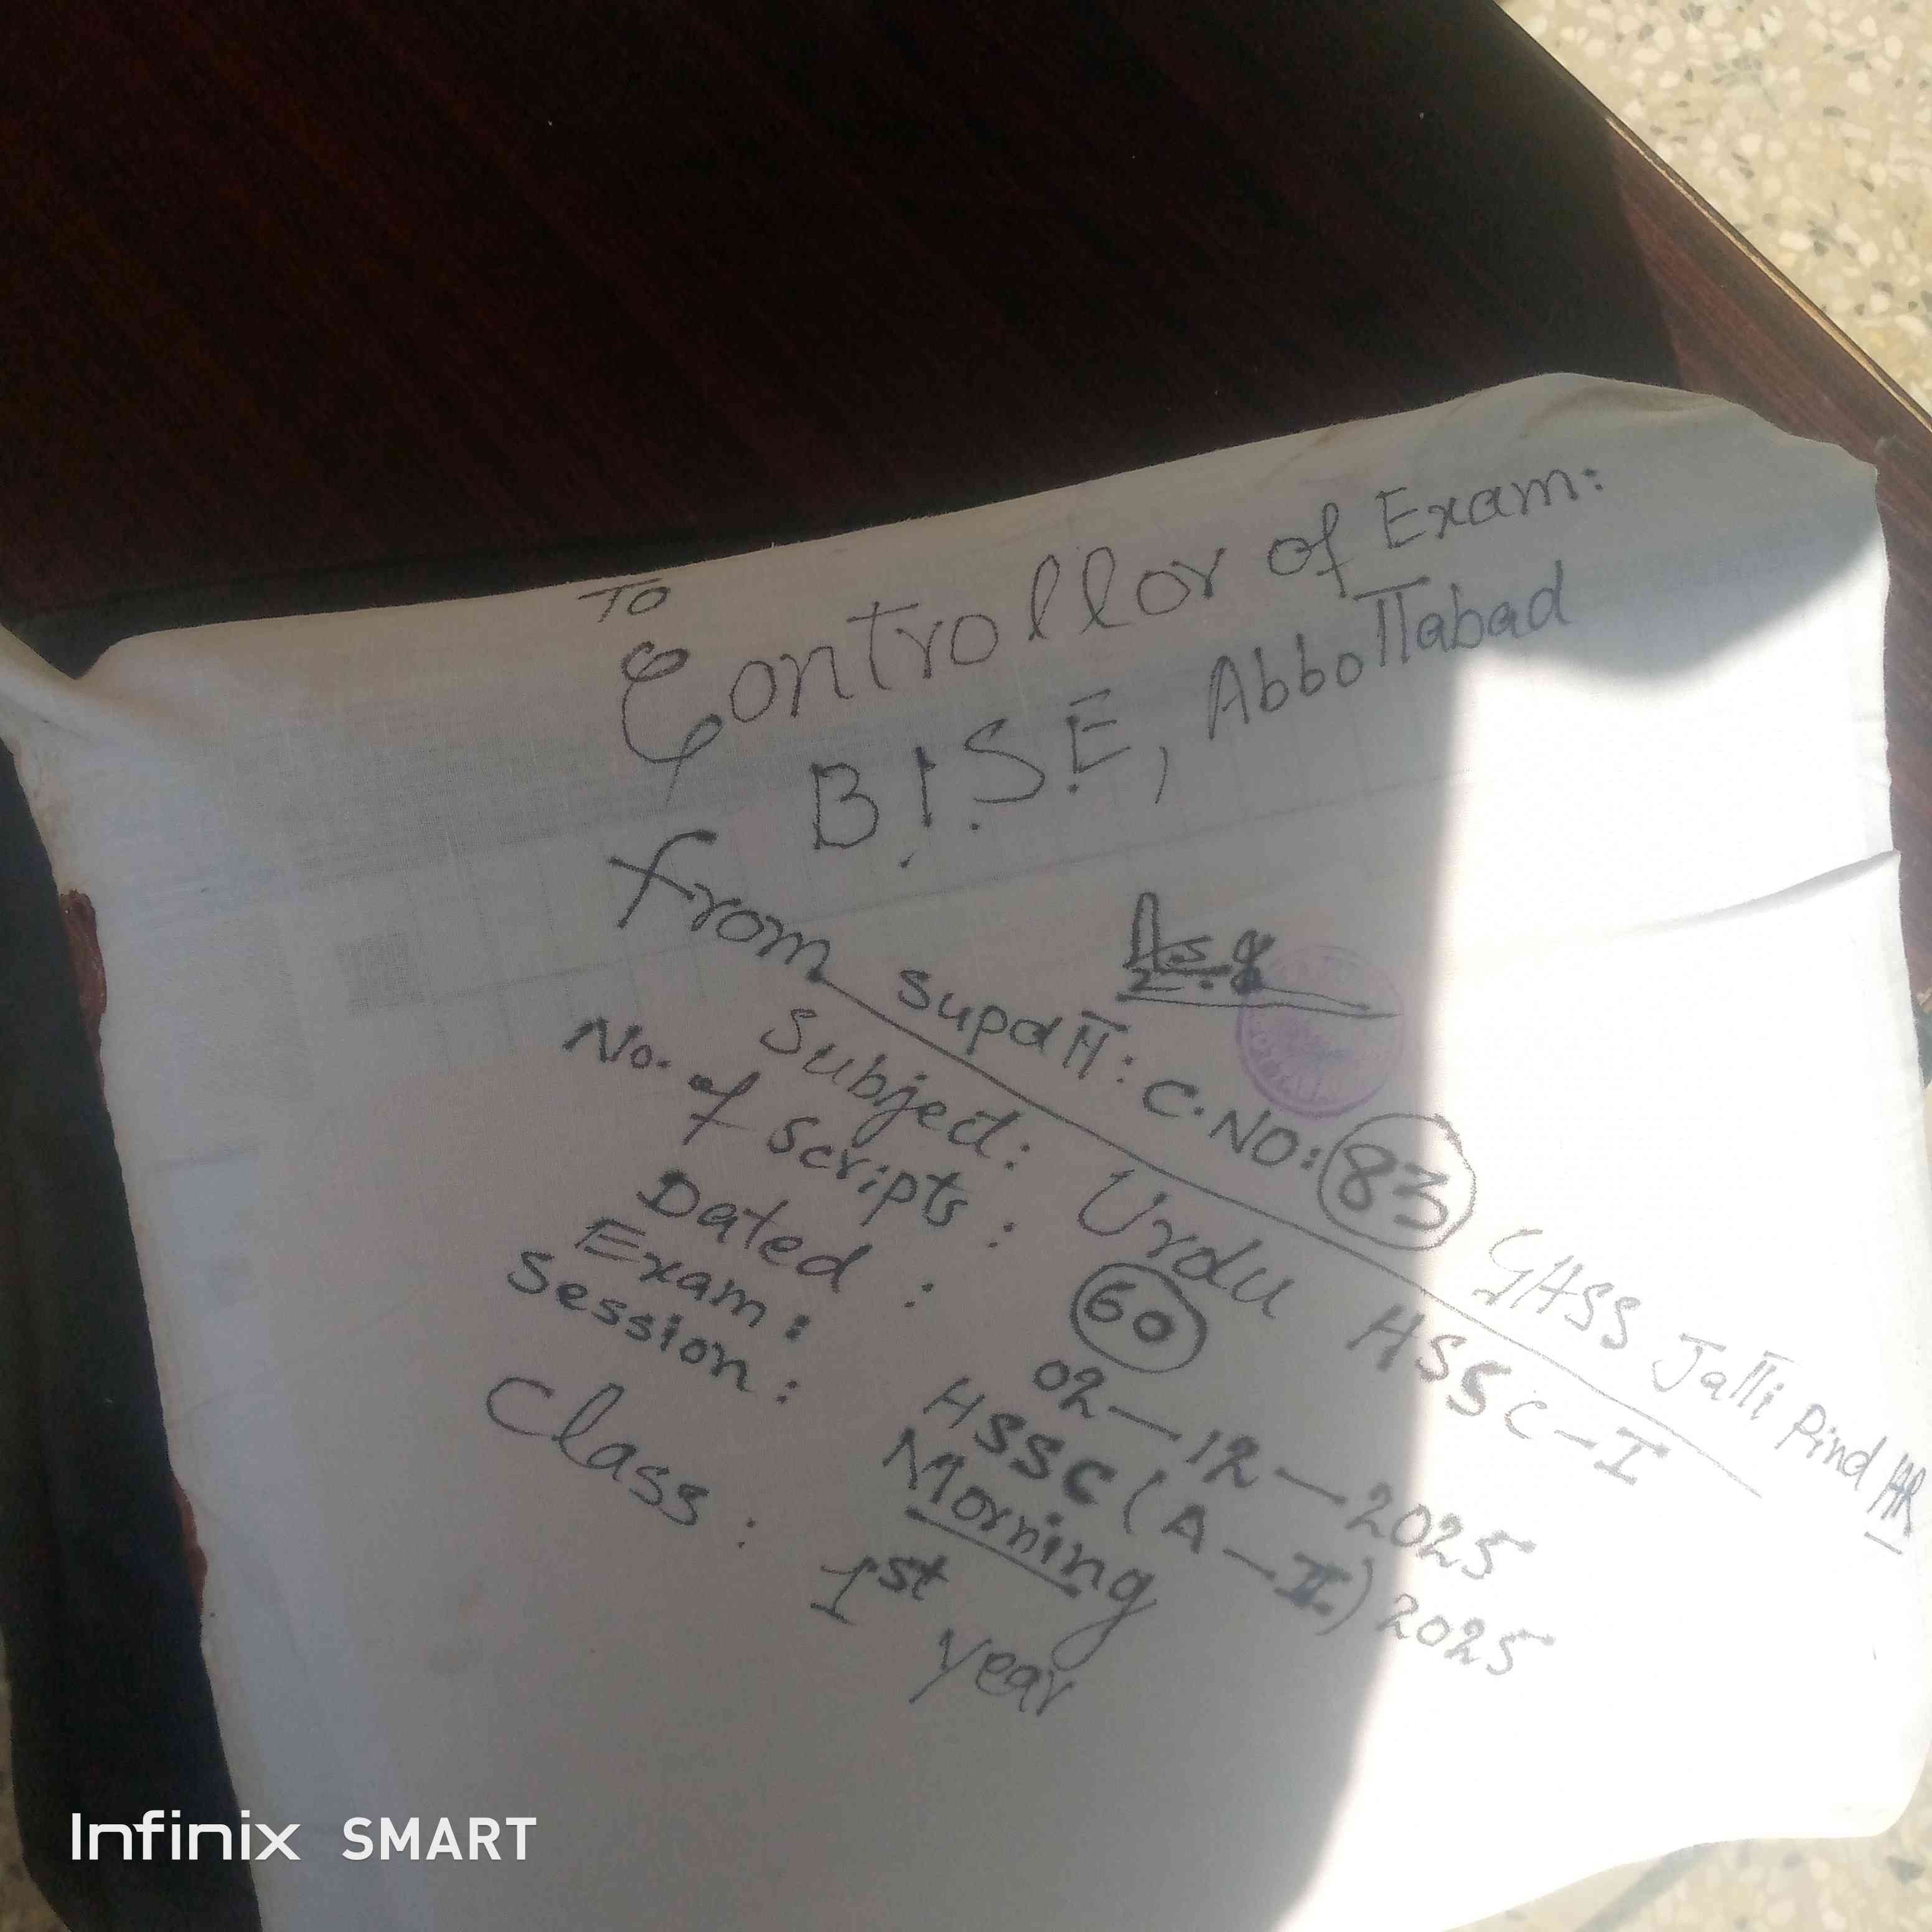 To
Controllor of Exam:
B.I.S.E, Abbottabad
from Supdtt: C.No: 83 GHSS Jatti Pind HR
Subject: Urdu HSSC-I
No. of Scripts: 60
Dated: 02-12-2025
Exam: HSSC (A-II) 2025
Session: Morning
Class: 1st year
Infinix SMART